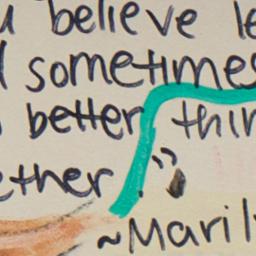 u believe le
sometimes
better thin
ether "
~Maril